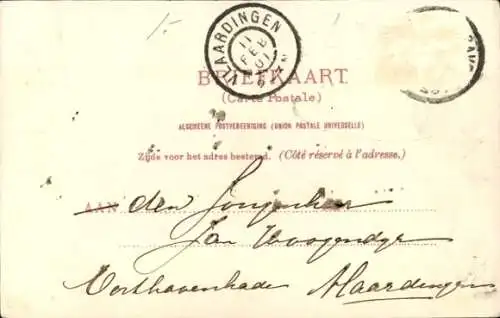 VLAARDINGEN
11 FEB 01
BRIEFKAART
(Carte Postale)
ALGEMEENE POSTVEREENIGING (UNION POSTALE UNIVERSELLE)
Zijde voor het adres bestemd. (Côté réservé à l'adresse.)
AAN den Jongenheer
Jan Hoogendijk
Oosthavenkade Vlaardingen